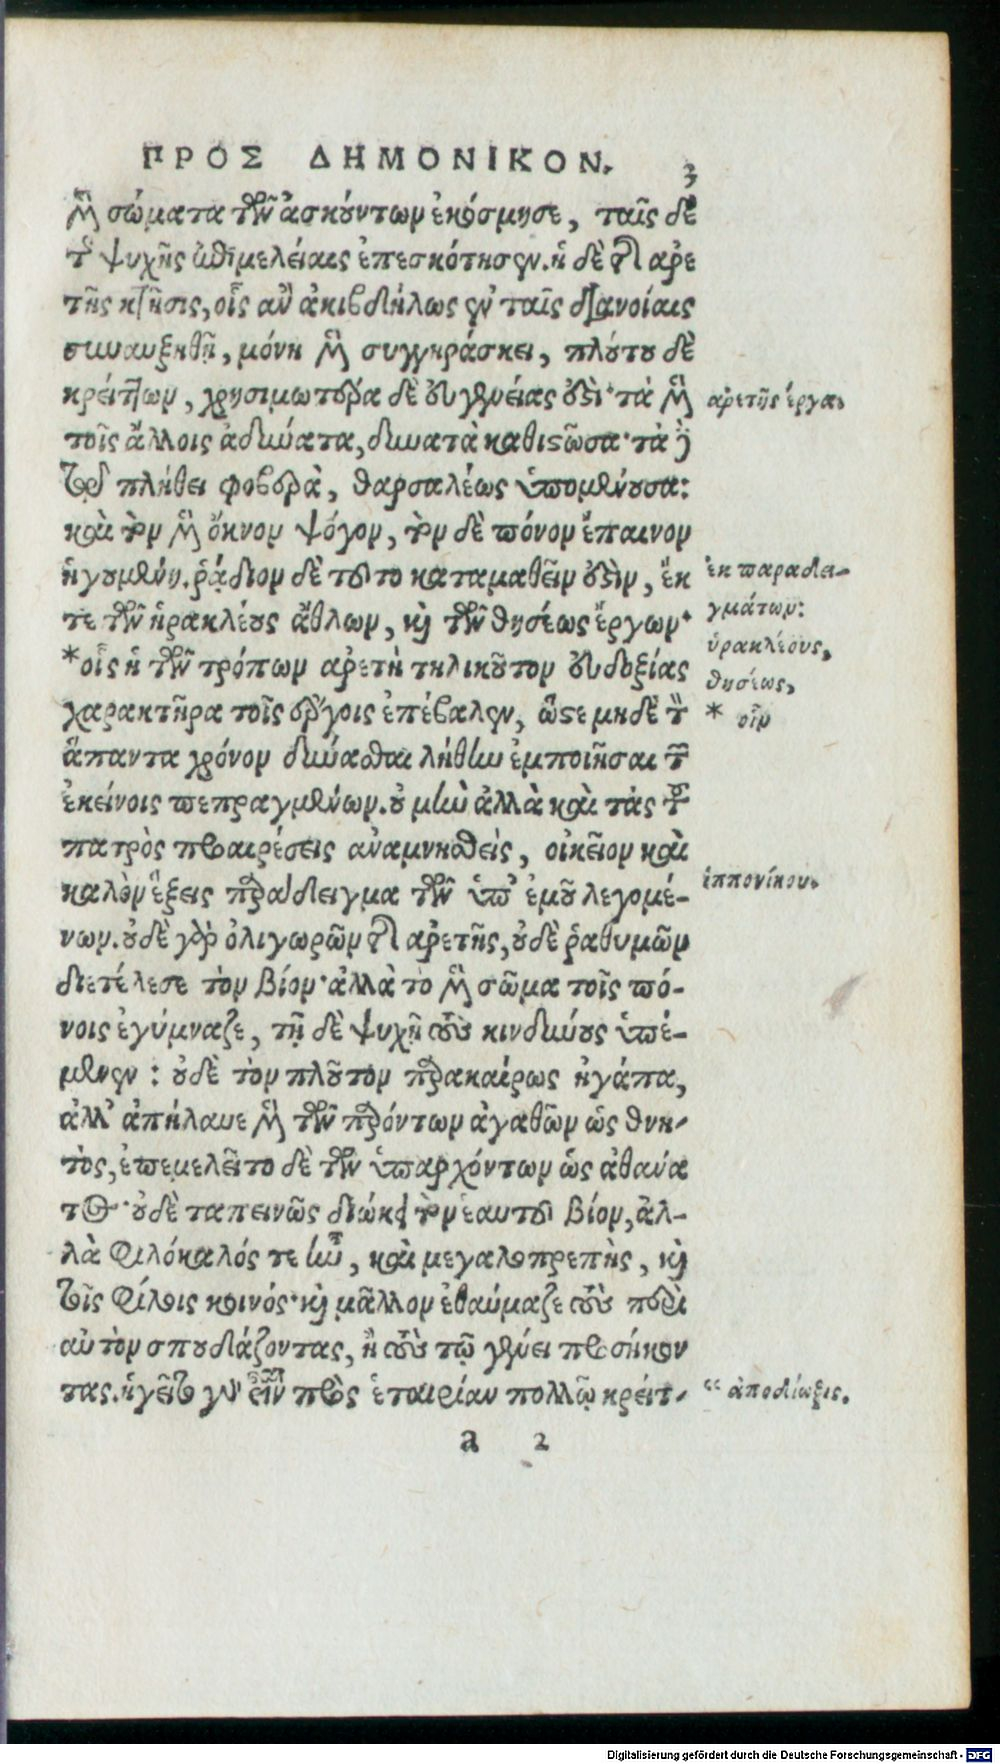 ΠΡΟΣ ΔΗΜΟΝΙΚΟΝ. 3
μὲν σώματα τῶν ἀσκούντων ἐκόσμησε, ταῖς δὲ
τῆς ψυχῆς ἐπιμελείαις ἐπεσκότησεν. ἡ δὲ τῆς ἀρε
τῆς κτῆσις, οἷς ἂν ἀκιβδήλως ἐν ταῖς διανοίαις
συναυξηθῇ, μόνη μὲν συγγηράσκει, πλούτου δὲ
κρείττων, χρησιμωτέρα δὲ εὐγενείας ἐστί· τὰ μὲν
τοῖς ἄλλοις ἀδύνατα, δυνατὰ καθιστῶσα· τὰ δὲ
τῷ πλήθει φοβερὰ, θαρσαλέως ὑπομένουσα:
καὶ τὸν μὲν ὄκνον ψόγον, τὸν δὲ πόνον ἔπαινον
ἡγουμένη. ῥᾴδιον δὲ τοῦτο καταμαθεῖν ἐστὶν, ἔκ
τε τῶν ἡρακλέους ἄθλων, καὶ τῶν θησέως ἔργων·
*οἷς ἡ τῶν τρόπων ἀρετὴ τηλικοῦτον εὐδοξίας
χαρακτῆρα τοῖς ἔργοις ἐπέβαλεν, ὥστε μηδὲ τὸν
ἅπαντα χρόνον δύνασθαι λήθην ἐμποιῆσαι τῶν
ἐκείνοις πεπραγμένων. οὐ μὴν ἀλλὰ καὶ τὰς τοῦ
πατρὸς προαιρέσεις ἀναμνησθεὶς, οἰκεῖον καὶ
καλὸν ἕξεις παράδειγμα τῶν ὑπ' ἐμοῦ λεγομέ-
νων. οὐδὲ γὰρ ὀλιγωρῶν τῆς ἀρετῆς, οὐδὲ ῥαθυμῶν
διετέλεσε τὸν βίον· ἀλλὰ τὸ μὲν σῶμα τοῖς πό-
νοις ἐγύμναζε, τῇ δὲ ψυχῇ τοὺς κινδύνους ὑπέ-
μενεν: οὐδὲ τὸν πλοῦτον παρακαίρως ἠγάπα,
ἀλλ' ἀπήλαυε μὲν τῶν παρόντων ἀγαθῶν ὡς θνη-
τὸς, ἐπεμελεῖτο δὲ τῶν ὑπαρχόντων ὡς ἀθάνα
τος· οὐδὲ ταπεινῶς διῴκει τὸν ἑαυτοῦ βίον, ἀλ-
λὰ φιλόκαλός τε ἦν, καὶ μεγαλοπρεπὴς, καὶ
τοῖς φίλοις κοινός· καὶ μᾶλλον ἐθαύμαζε τοὺς περὶ
αὐτὸν σπουδάζοντας, ἢ τοὺς τῷ γένει προσήκον
τας. ἡγεῖτο γὰρ εἶναι πρὸς ἑταιρίαν πολλῷ κρείτ-
a 2
ἀρετῆς ἔργα.
ἐκ παραδει-
γμάτων:
ἡρακλέους,
θησέως,
* οἷν
ἱππονίκου.
“ ἀποδίωξις.
Digitalisierung gefördert durch die Deutsche Forschungsgemeinschaft - DFG